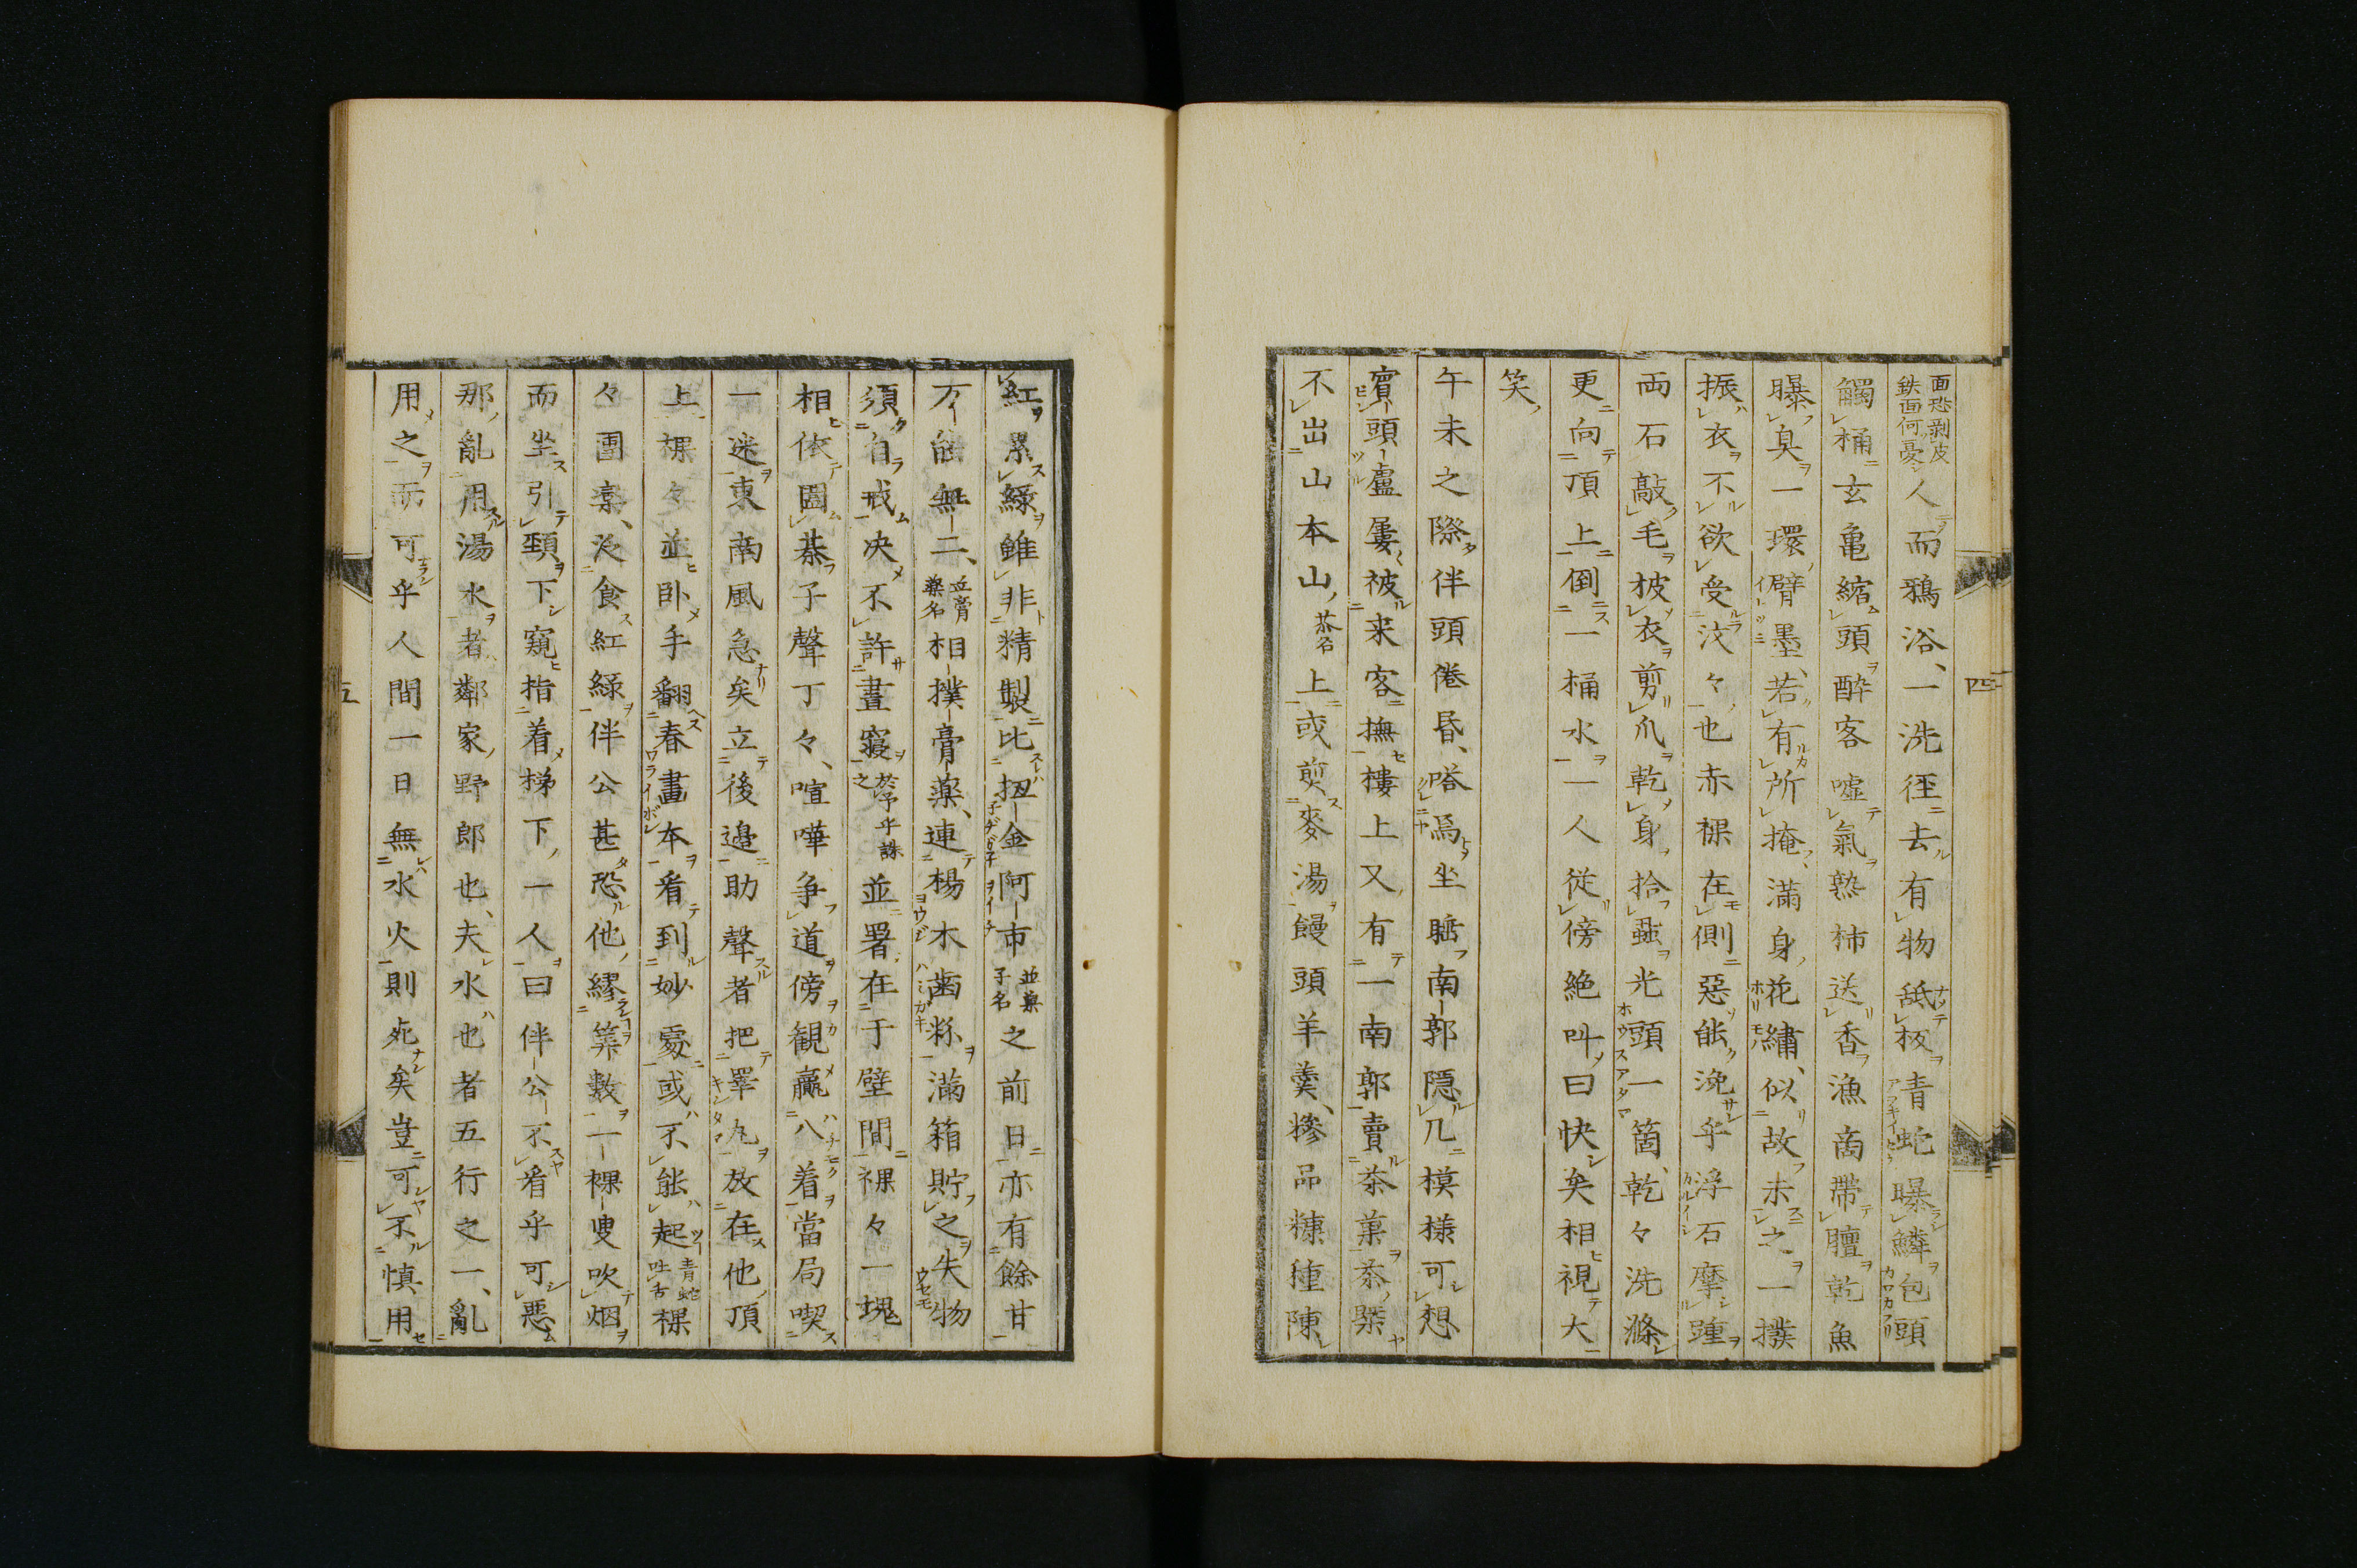 面恐剥皮
鉄面何憂人而鴉浴、一洗徑去有物舐板青蛇曝鱗包頭
觸桶玄亀縮頭酔客嘘氣熟柿送香漁商帶膻乾魚
曝臭一環臂墨、若有所掩、滿身花繡、似故未之、一撲
振衣不欲受汶々也赤裸在側惡能浼乎浮石摩踵
両石敲毛披衣剪爪乾身拾蝨光頭一箇、乾々洗滌
更向頂上倒一桶水一人從傍絶叫曰快矣相視大
笑
午未之際伴頭倦昏、嗒焉坐睡南郭隠几模様可想
賓頭盧屢被来客撫楼上又有一南郭賣茶菓茶
不出山本山茶名上或煎麥湯饅頭羊羹、品種陳
四
紅累緑雖非精製比扭金阿市並菓子名之前日亦有餘甘
万能無二、並膏藥名相撲膏藥、連楊木歯粉滿箱貯之失物
須自戒决不許晝寢並署在于壁間裸々一塊
相依圍棊子聲丁々、喧嘩争道傍観贏八着當局喫
一迷東南風急矣立後邉助聲者把睾丸放在他頂
上裸々並臥手翻春畫本看到妙處或不能起青蛇吐舌裸
々團欒、泛食紅緑伴公甚恐他繆筭数一裸叟吹烟
而坐引頸下窺指着梯下一人曰伴公不看乎可惡
那亂用湯水者鄰家野郎也、夫水也者五行之一、亂
用之而可乎人間一日無水火則死矣豈可不慎用
五